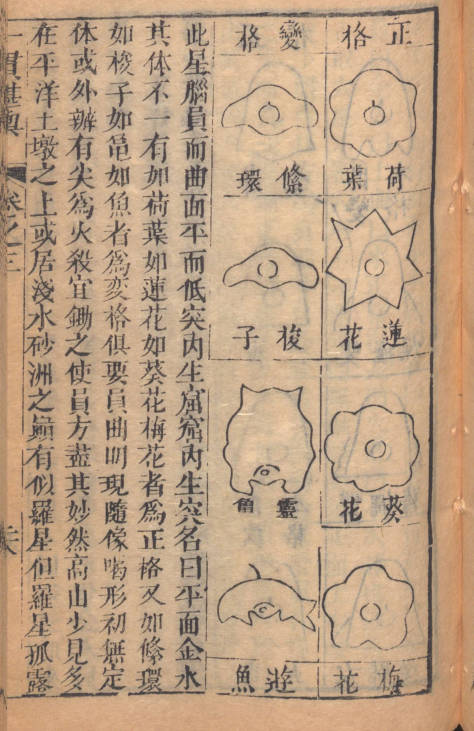 正格
荷葉
蓮花
葵花
梅花
變格
絛環
梭子
靈龜
遊魚
此星腦員而曲面平而低突內生窟窟內生突名曰平面金水
其体不一有如荷葉如蓮花如葵花梅花者爲正格又如絛環
如梭子如黽如魚者爲変格俱要員曲明現隨像喝形初無定
体或外辦有尖爲火殺宜鋤之使員方盡其妙然高山少見多
在平洋土墩之上或居淺水砂洲之巔有似羅星但羅星孤露
一貫堪輿
卷之三